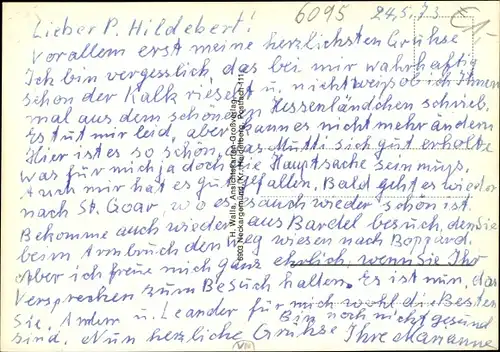 6095 24.5.73 €1-
Lieber P. Hildebert!
Vorallem erst meine herzlichsten Grühse
Ich bin vergesslich, das bei mir wahrhaftig
schon der Kalk rieselt u. nicht weiß ob ich Ihnen
mal aus dem schönen Hessenländchen schrieb.
Es tut mir leid, aber kann es nicht mehr ändern
Hier ist es so schön, das Mutti sich gut erholte
was für mich ja doch die Hauptsache sein muss.
Auch mir hat es gut gefallen. Bald geht es wieder
nach St. Goar, wo es ja auch wieder schön ist.
Bekomme auch wieder aus Bardel besuch, den Sie
beim Armbruch den Weg wiesen nach Boppard.
Aber ich freue mich ganz ehrlich, wenn Sie Ihr
Versprechen zum Besuch halten. Es ist nun, das
Sie, u. Leander für mich wohl die Besten
sind. Bin noch nicht gesund
Nun herzliche Grühse Ihre Marianne
H. Walla, Ansichtskarten-Großverlag
6903 Neckargemünd, Kr. Heidelberg, Postfach 111